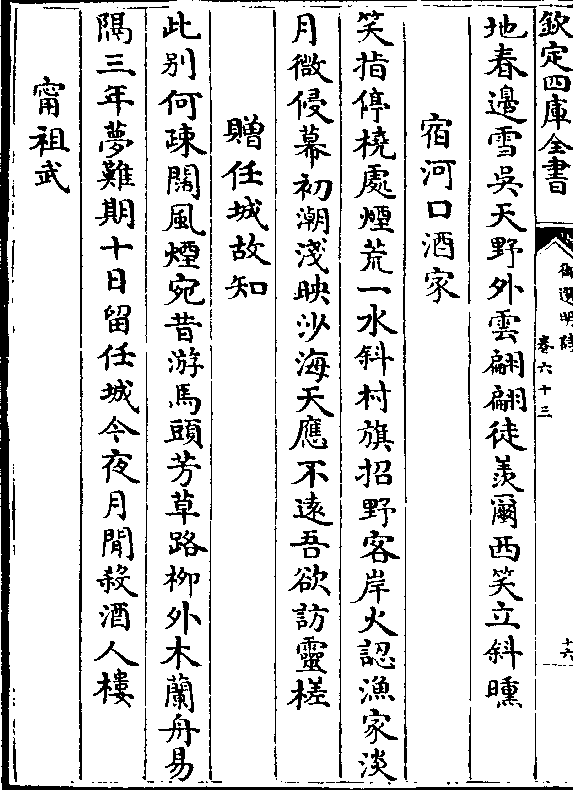 欽定四庫全書
御選明詩
卷六十三
十六
地春邊雪吳天野外雲翩翩徒羨爾西笑立斜曛
宿河口酒家
笑指停橈處煙荒一水斜村旗招野客岸火認漁家淡
月微侵幕初潮淺映沙海天應不遠吾欲訪靈槎
贈任城故知
此别何疎闊風煙宛昔游馬頭芳草路柳外木蘭舟易
隔三年夢難期十日留任城今夜月閒殺酒人樓
甯祖武